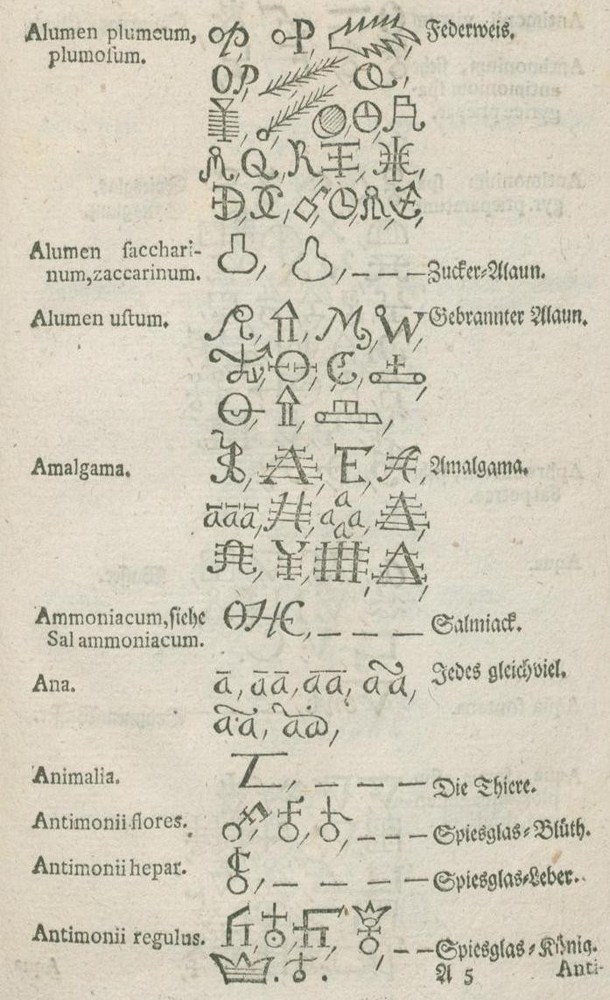 Alumen plumeum, Federweis.
plumoſum.
Alumen ſacchari-
num, zaccarinum. Zucker-Alaun.
Alumen uſtum. Gebrannter Alaun.
Amalgama. Amalgama.
āāā, a
a a
a
Ammoniacum, ſiehe
Sal ammoniacum. Salmiack.
Ana. ā, āā, āā, aã, Jedes gleichviel.
Animalia. Die Thiere.
Antimonii flores. Spiesglas-Blüth.
Antimonii hepar. Spiesglas-Leber.
Antimonii regulus. Spiesglas-König.
A 5 Anti-